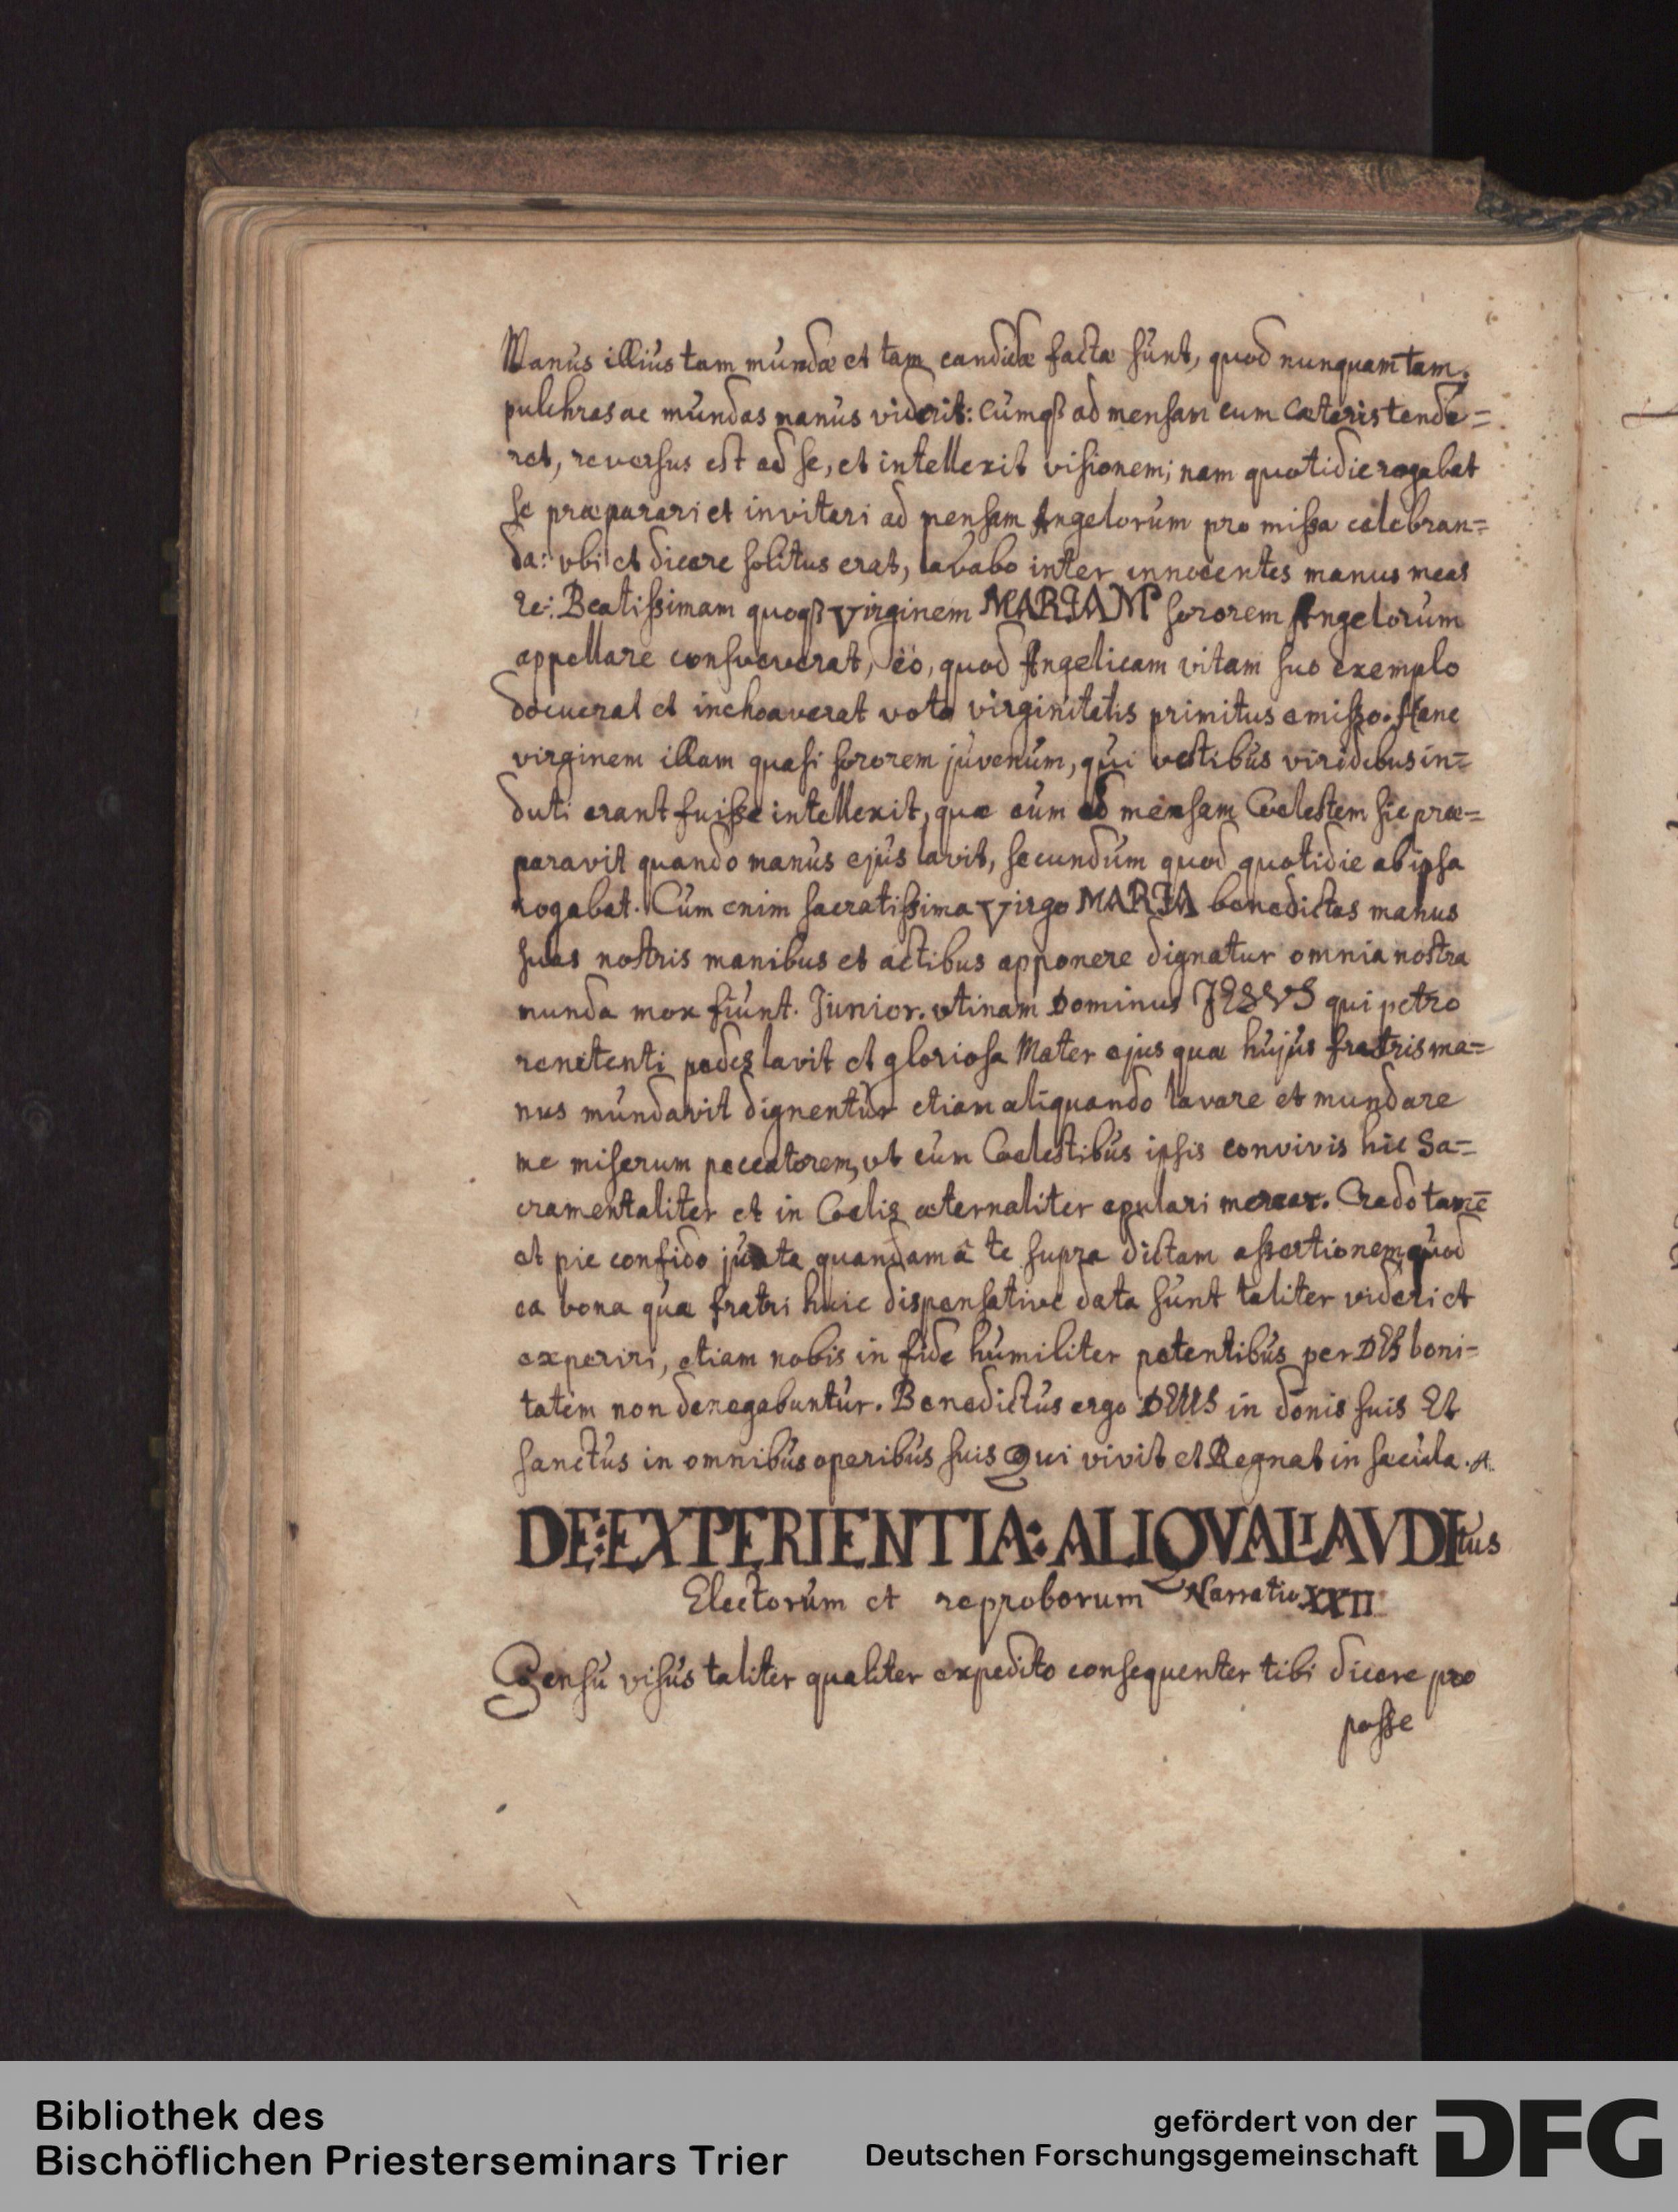 Manus illius tam mundæ et tam candidæ factæ sunt, quod nunquam tam
pulchras ac mundas manus viderit: cumqß ad mensam cum cæteris tende=
ret, reversus est ad se, et intellexit visionem; nam quotidie rogabat
se præparari et invitari ad mensam Angelorum pro missa celebran=
da: vbi et dicere solitus erat, lavabo inter innocentes manus meas
&c: Beatissimam quoqß Virginem MARIAM sororem Angelorum
appellare consveverat, ëo, quod Angelicam vitam suo exemplo
docuerat et inchoaverat voto virginitatis primitus emisso. Hanc
virginem illam quasi sororem juvenum, qui vestibus viridibus in=
duti erant fuisse intellexit, quæ eum ad mensam Coelestem sic præ=
paravit quando manus ejus lavit, secundum quod quotidie ab ipsa
rogabat. Cum enim sacratissima Virgo MARIA benedictas manus
suas nostris manibus et actibus apponere dignatur omnia nostra
munda mox fiunt. Junior. vtinam Dominus JESVS qui petro
renitenti pedes lavit et gloriosa Mater ejus quæ hujus fratris ma=
nus mundavit dignentur etiam aliquando lavare et mundare
me miserum peccatorem, vt cum Coelestibus ipsis convivis hic Sa=
cramentaliter et in Coelis æternaliter epulari merear. Credo tamē
et pie confido juxta quandam â te supra dictam assertionem, quod
ea bona quæ fratri huic dispensative data sunt taliter videri et
experiri, etiam nobis in fide humiliter petentibus per DEI boni=
tatem non denegabuntur. Benedictus ergo DEUS in donis suis Et
sanctus in omnibus operibus suis Qui vivit et Regnat in sæcula. A.
DE: EXPERIENTIA: ALIQVALI AVDItus
Electorum et reproborum Narratio XXII
Sensu visus taliter qualiter expedito consequenter tibi dicere pro
posse
Bibliothek des
Bischöflichen Priesterseminars Trier
gefördert von der
Deutschen Forschungsgemeinschaft
DFG